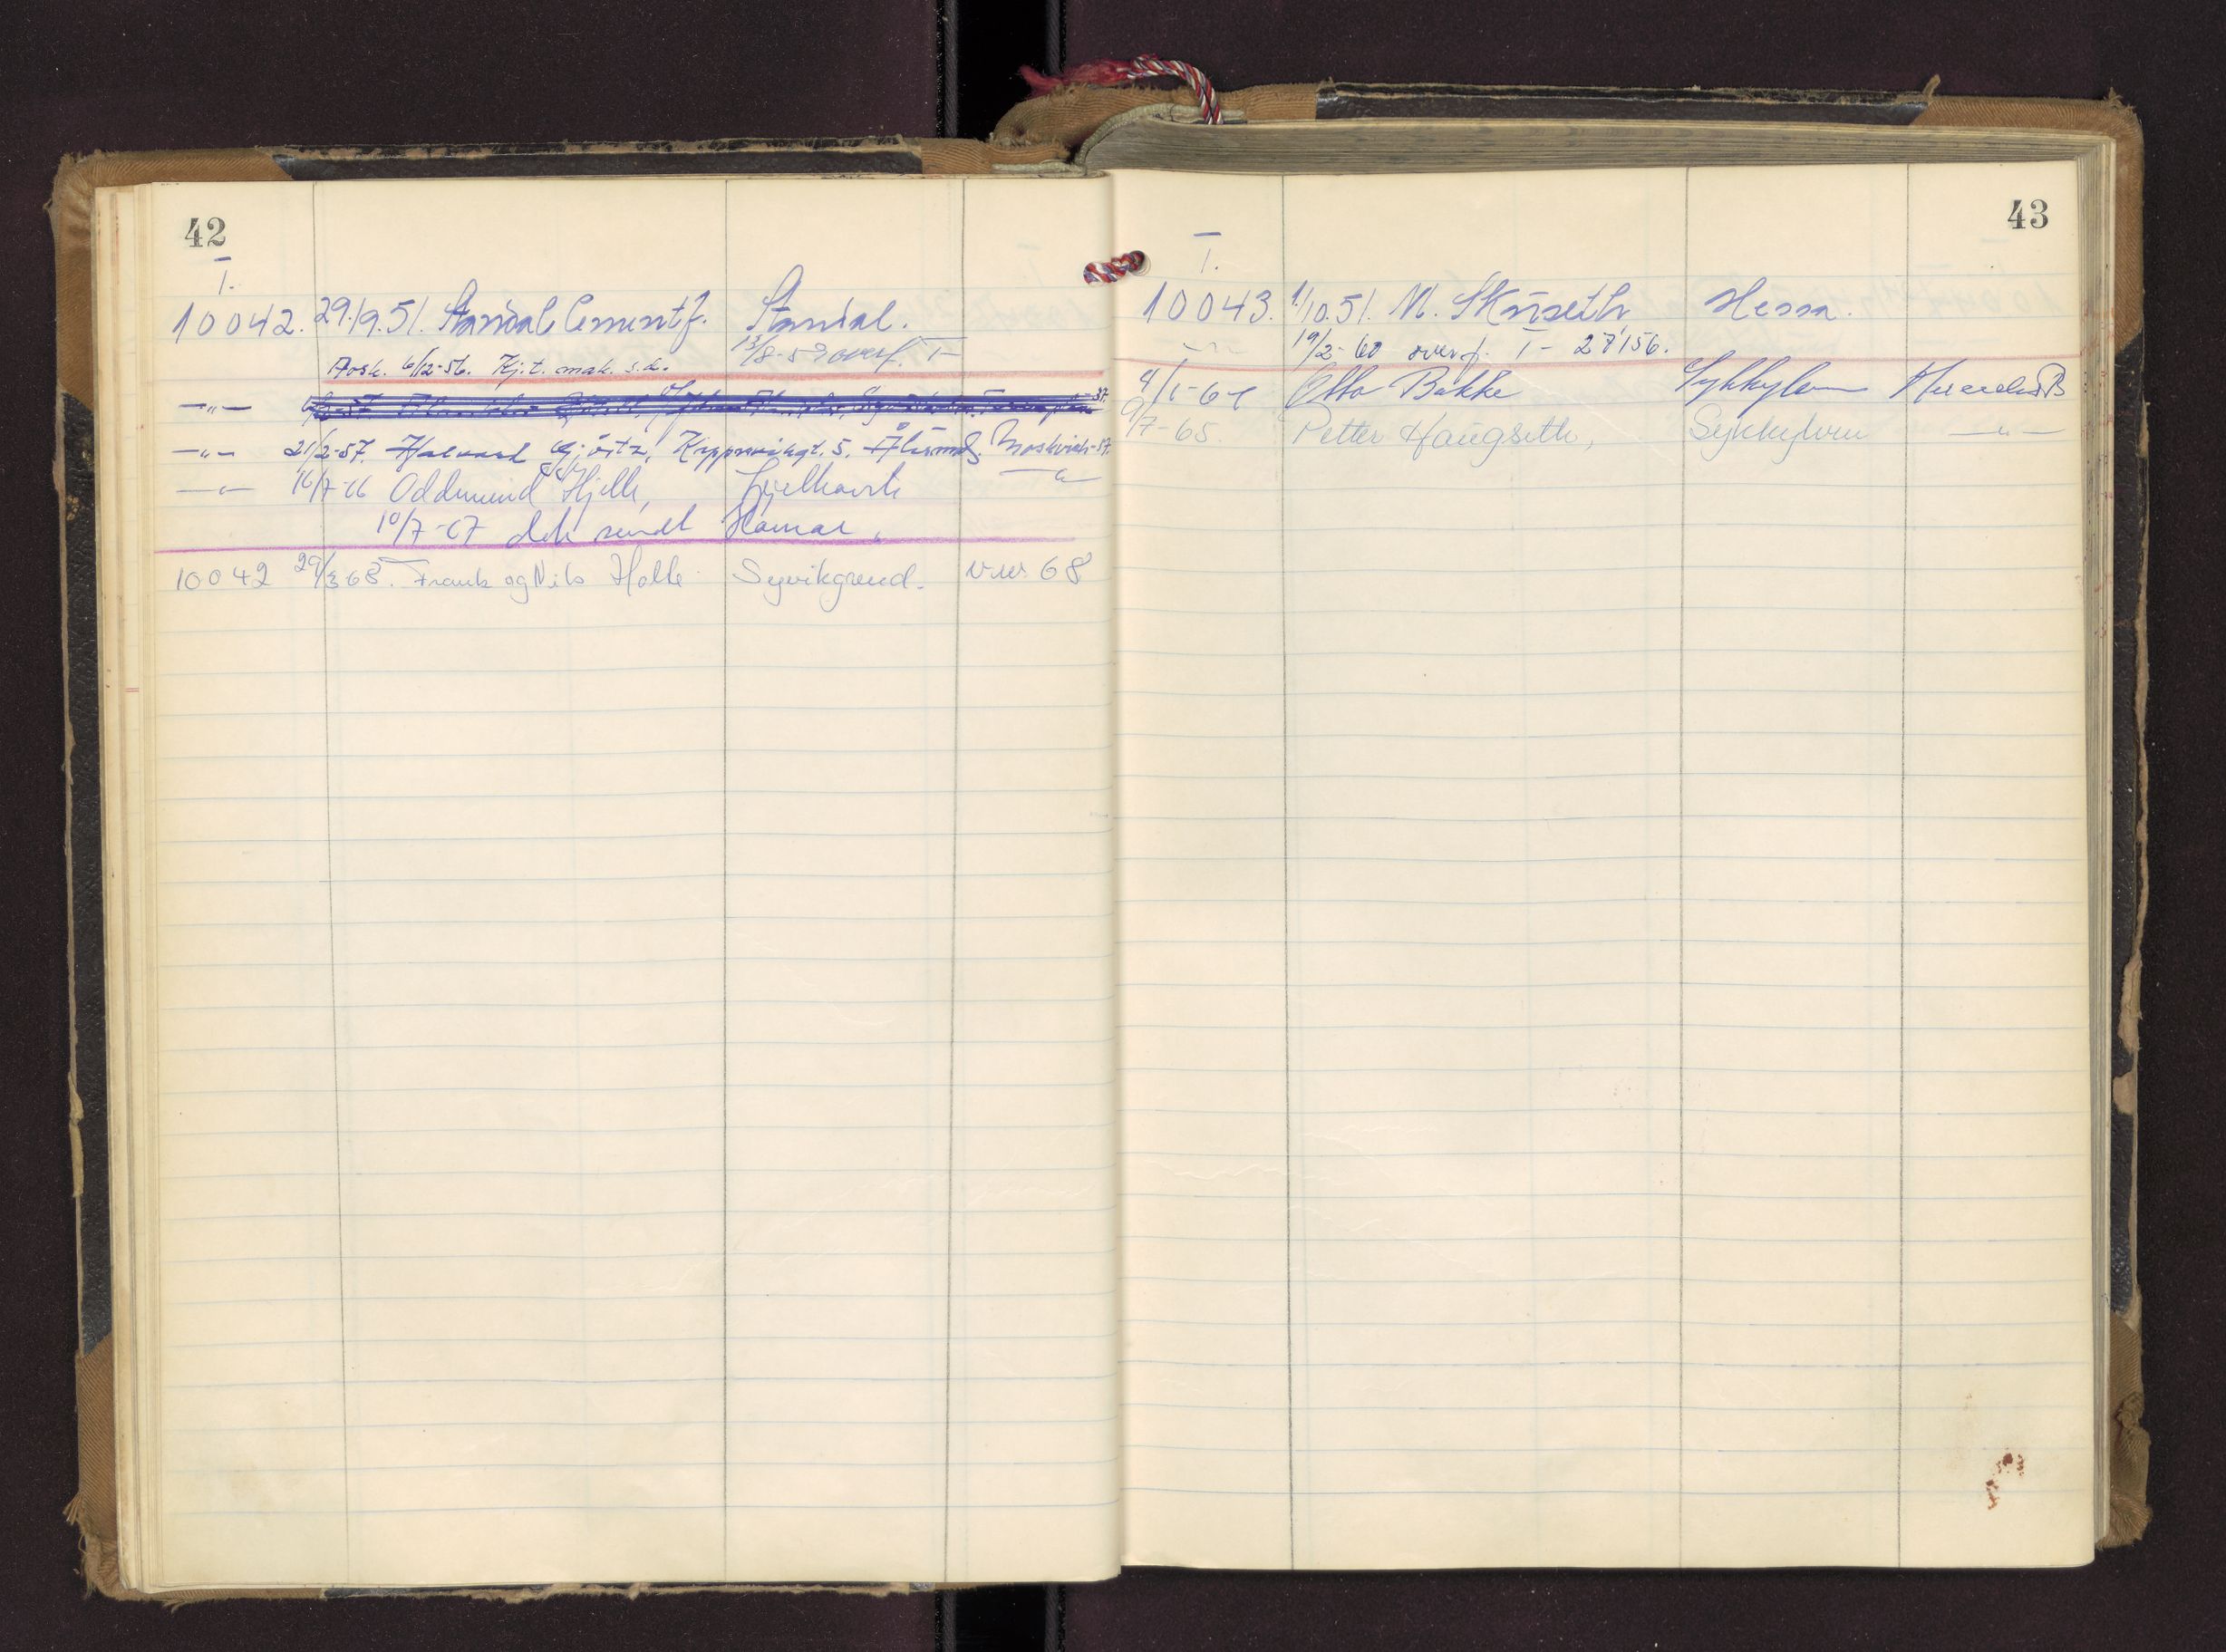 42
I.
10042. 29./9.51. Standal Cementf. Standal.
Avsk. 6/12-56. Kj.t. mak. s.d. 13/8-52 overf. I-
—"— 21/2-57. Halvard Gjørtz, Kipperviksgt. 5. Ålesund. Moskvich-57.
—"— 16/7-66 Oddmund Hjelle, —"—
10/7-67 dok sendt Hamar.
10042 29/3 68. Frank og Nils Holte Syvikgrend. VW 68
43
I.
10043. 1./10.51. M. Skuseth Hessa.
—"— 19/2-60 overf. I- 27156.
4/1-64 Otto Bakke Sykkylven Mercedes B
9/7-65. Petter Haugseth, Sykkylven —"—